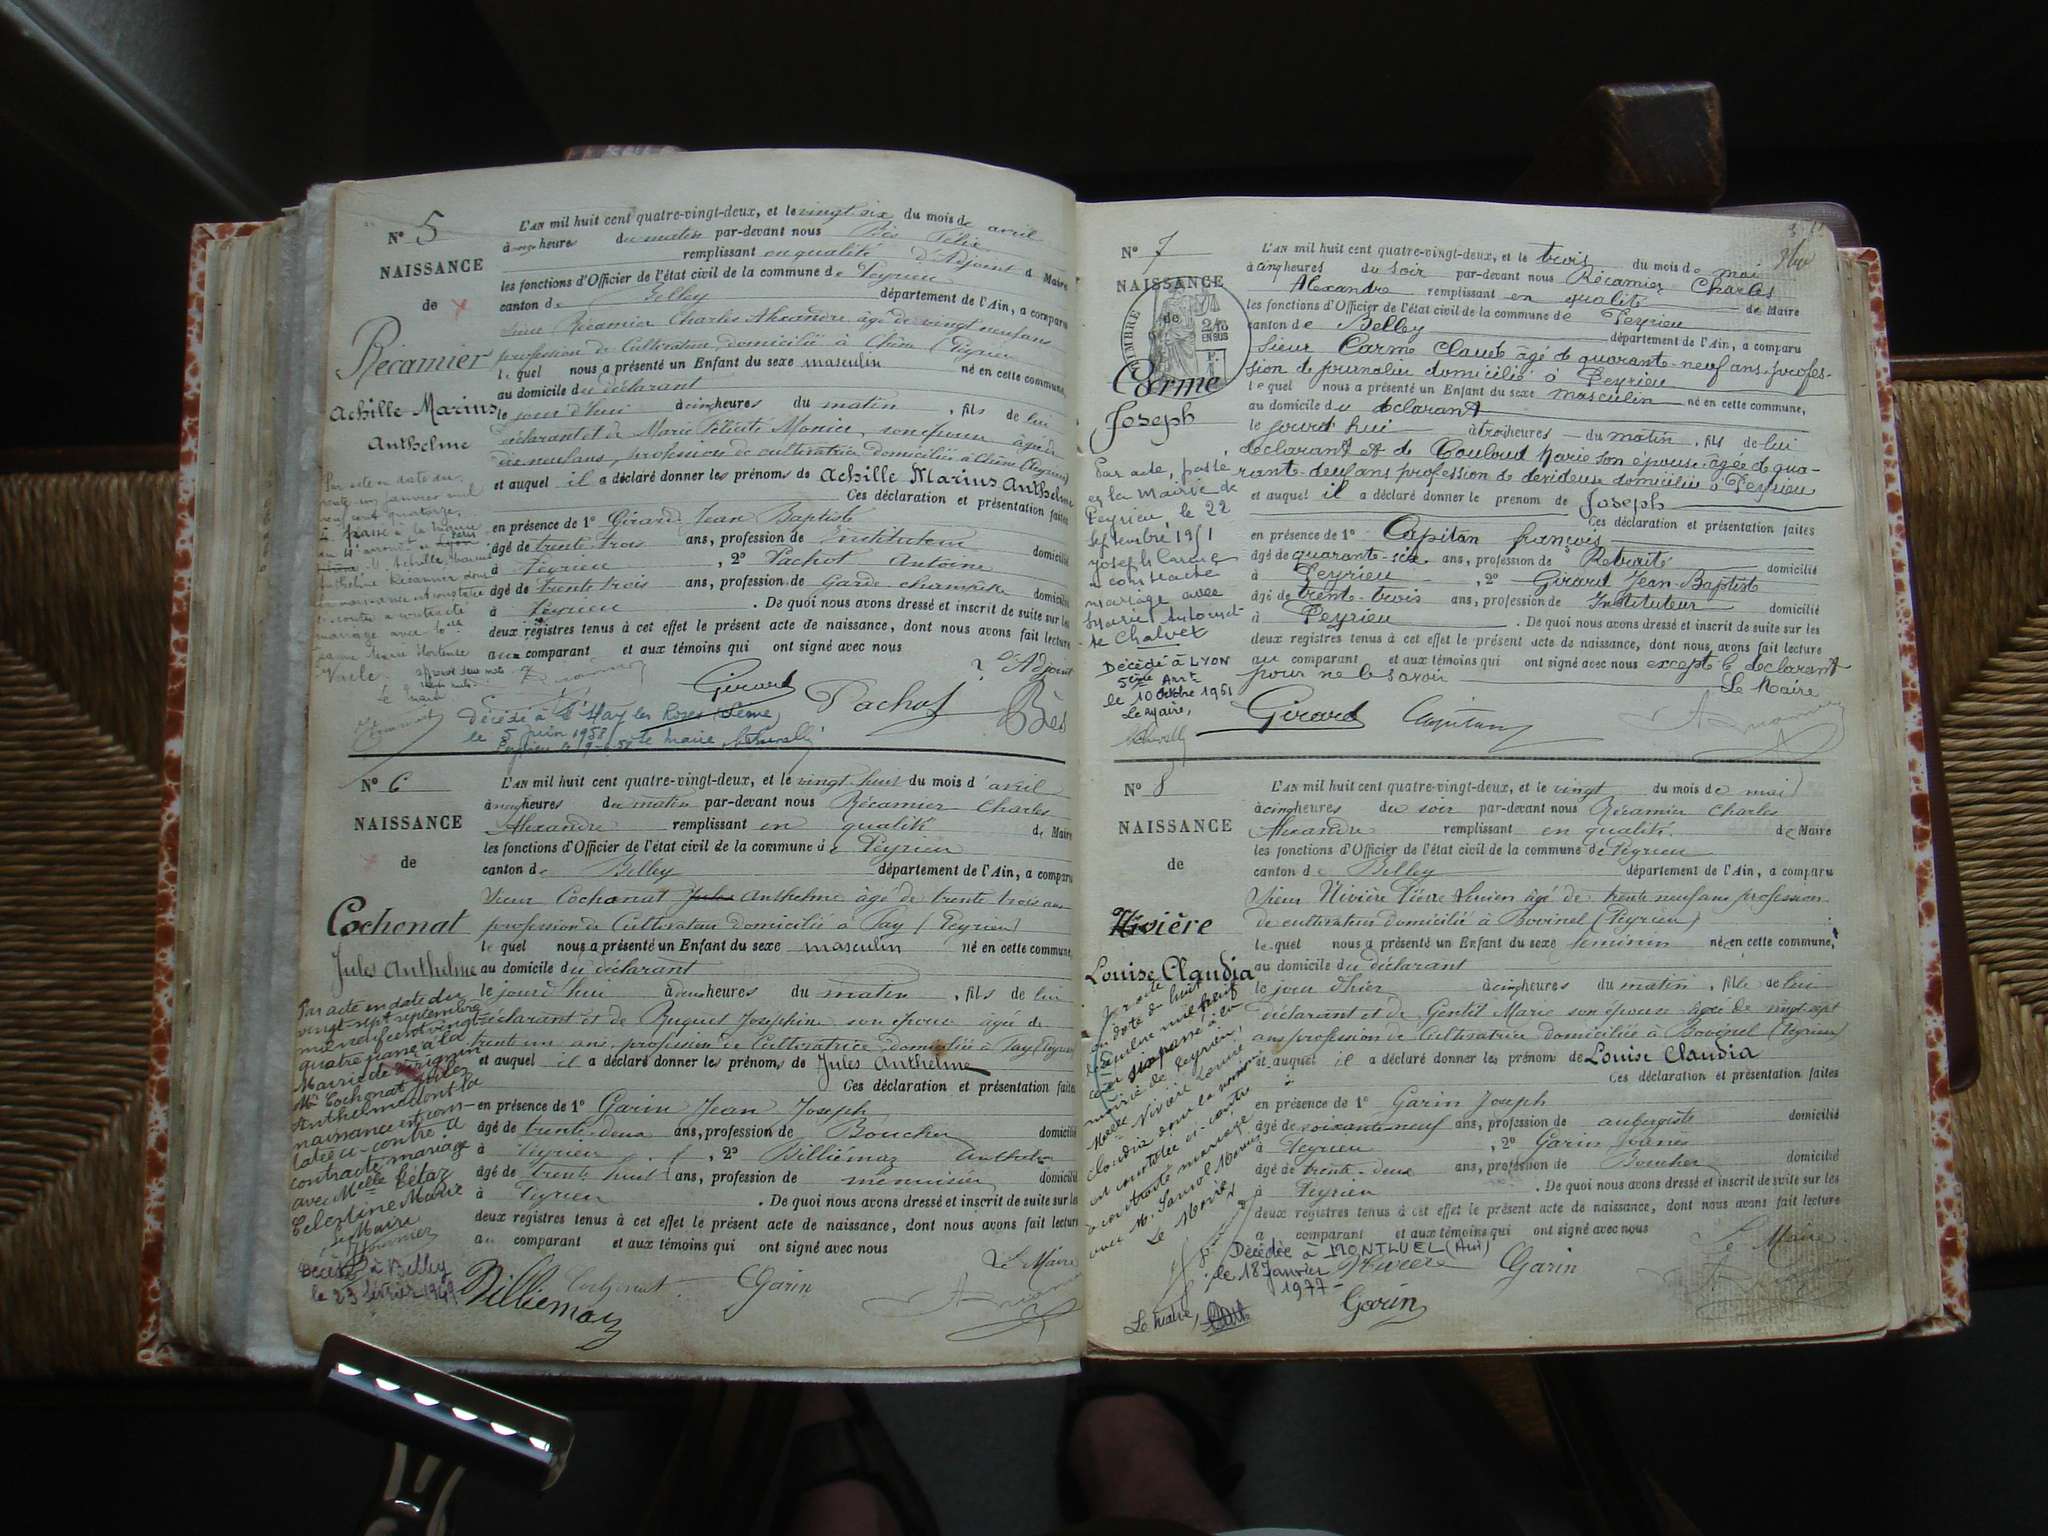 N° 5
NAISSANCE
de
Récamier
Achille Marius
Anthelme
L'AN mil huit cent quatre-vingt-deux, et le vingt six du mois de avril
à onze heures du matin par-devant nous Bès Félix
remplissant en qualité d'Adjoint d Maire
les fonctions d'Officier de l'état civil de la commune de Peyrieu
canton de Belley département de l'Ain, a comparu
sieur Récamier Charles Alexandre âgé de vingt neuf ans
profession de Cultivateur domicilié à Chêne (Peyrieu
le quel nous a présenté un Enfant du sexe masculin né en cette commune,
au domicile du déclarant
le jour d'hui à cinq heures du matin, fils de lui
déclarant et de Marie Félicité Monier, son épouse âgée de
dix neuf ans, profession de cultivatrice domiciliée à Chêne (Peyrieu)
et auquel il a déclaré donner les prénoms de Achille Marius Anthelme
Ces déclaration et présentation faites
en présence de 1° Girard Jean Baptiste
âgé de trente trois ans, profession de Instituteur domicilié
à Peyrieu, 2° Pachot Antoine
âgé de trente trois ans, profession de Garde champêtre domicilié
à Peyrieu. De quoi nous avons dressé et inscrit de suite sur les
deux registres tenus à cet effet le présent acte de naissance, dont nous avons fait lecture
aux comparant et aux témoins qui ont signé avec nous
L'Adjoint
Girard Pachot Bès
Par acte en date du
vingt un janvier mil
neuf cent quatorze,
passé à la mairie
M. Achille Marius
Anthelme Récamier dont
la naissance est constatée
ci-contre a contracté
mariage avec Melle
Jeanne Marie Hortense
Décédé à L'Hay les Roses (Seine)
le 5 juin 1958
N° 6
NAISSANCE
de
Cochonat
Jules Anthelme
L'AN mil huit cent quatre-vingt-deux, et le vingt huit du mois d'avril
à neuf heures du matin par-devant nous Récamier Charles
Alexandre remplissant en qualité de Maire
les fonctions d'Officier de l'état civil de la commune de Peyrieu
canton de Belley département de l'Ain, a comparu
sieur Cochonat Jules Anthelme âgé de trente trois ans
profession de Cultivateur domicilié à Fay (Peyrieu)
le quel nous a présenté un Enfant du sexe masculin né en cette commune,
au domicile du déclarant
le jourd'hui à deux heures du matin, fils de lui
déclarant et de Buguet Joséphine son épouse âgée de
trente un ans, profession de Cultivatrice domiciliée à Fay (Peyrieu
et auquel il a déclaré donner les prénoms de Jules Anthelme
Ces déclaration et présentation faites
en présence de 1° Garin Jean Joseph
âgé de trente deux ans, profession de Boucher domicilié
à Peyrieu, 2° Billiémaz Anthelme
âgé de trente huit ans, profession de menuisier domicilié
à Peyrieu. De quoi nous avons dressé et inscrit de suite sur les
deux registres tenus à cet effet le présent acte de naissance, dont nous avons fait lecture
au comparant et aux témoins qui ont signé avec nous
Le Maire
Billiemaz Cochonat Garin
Par acte en date du
vingt-sept septembre
mil neuf cent vingt
quatre passé à la
Mairie de Virignin
Mr Cochonat Jules
Anthelme dont la
naissance est cons-
tatée ci-contre a
contracté mariage
avec Melle Bétaz
Célestine Marie
Le Maire
Décédé à Belley
le 23 février 1949
N° 7
NAISSANCE
de
TIMBRE
Carme
Joseph
L'AN mil huit cent quatre-vingt-deux, et le trois du mois de mai
à cinq heures du soir par-devant nous Récamier Charles
Alexandre remplissant en qualité de Maire
les fonctions d'Officier de l'état civil de la commune de Peyrieu
canton de Belley département de l'Ain, a comparu
sieur Carme Claude âgé de quarante-neuf ans, profes-
sion de journalier domicilié à Peyrieu
le quel nous a présenté un Enfant du sexe masculin né en cette commune,
au domicile du déclarant
le jourd'hui à trois heures du matin, fils de lui
déclarant et de Couloud Marie son épouse âgée de qua-
rante-deux ans profession de dévideuse domiciliée à Peyrieu
et auquel il a déclaré donner le prenom de Joseph
Ces déclaration et présentation faites
en présence de 1° Capitan françois
âgé de quarante-six ans, profession de Retraité domicilié
à Peyrieu, 2° Girard Jean-Baptiste
âgé de trente-trois ans, profession de Instituteur domicilié
à Peyrieu. De quoi nous avons dressé et inscrit de suite sur les
deux registres tenus à cet effet le présent acte de naissance, dont nous avons fait lecture
au comparant et aux témoins qui ont signé avec nous excepté le déclarant
pour ne le savoir
Le Maire
Girard Capitan
Par acte, passé
en la Mairie de
Peyrieu, le 22
Septembre 1951
Joseph Carme
a contracté
mariage avec
Marie Antoinet-
te Chalvet
Décédé à LYON
5ème Arrt
le 10 octobre 1961
Le Maire,
N° 8
NAISSANCE
de
Nivière
Louise Claudia
L'AN mil huit cent quatre-vingt-deux, et le vingt du mois de mai
à cinq heures du soir par-devant nous Récamier Charles
Alexandre remplissant en qualité de Maire
les fonctions d'Officier de l'état civil de la commune de Peyrieu
canton de Belley département de l'Ain, a comparu
sieur Nivière Pierre Lucien âgé de trente neuf ans profession
de cultivateur domicilié à Bovinel (Peyrieu)
le quel nous a présenté un Enfant du sexe féminin né en cette commune,
au domicile du déclarant
le jour d'hier à cinq heures du matin, fille de lui
déclarant et de Gentil Marie son épouse âgée de vingt-sept
ans profession de Cultivatrice domiciliée à Bovinel (Peyrieu)
et auquel il a déclaré donner les prénoms de Louise Claudia
Ces déclaration et présentation faites
en présence de 1° Garin Joseph
âgé de soixante-neuf ans, profession de aubergiste domicilié
à Peyrieu, 2° Garin
âgé de trente-deux ans, profession de Boucher domicilié
à Peyrieu. De quoi nous avons dressé et inscrit de suite sur les
deux registres tenus à cet effet le présent acte de naissance, dont nous avons fait lecture
a comparant et aux témoins qui ont signé avec nous
Le Maire
Nivière Garin
Garin
Par acte
en date du huit
mil neuf
cent six passé à la
mairie de Peyrieu,
Melle Nivière Louise
Claudia dont la naissance
est constatée ci-contre
a contracté mariage
Le Maire
Décédée à MONTLUEL (Ain)
le 18 Janvier
1977
Le Maire,